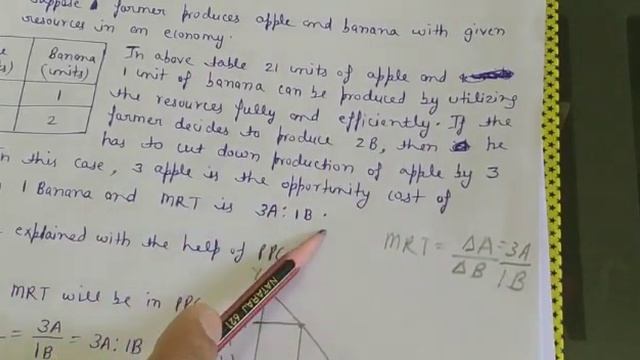 Suppose a farmer produces apple and banana with given
resources in an economy.
Banana
(units)
1
2
In above table 21 units of apple and
1 unit of banana can be produced by utilizing
the resources fully and efficiently. If the
farmer decides to produce 2B, then he
has to cut down production of apple by 3
In this case, 3 apple is the opportunity cost of
1 Banana and MRT is 3A:1B.
explained with the help of PPC
MRT = ΔA/ΔB = 3A/1B
MRT will be in PPC
= 3A/1B = 3A:1B
NATARAJ 621